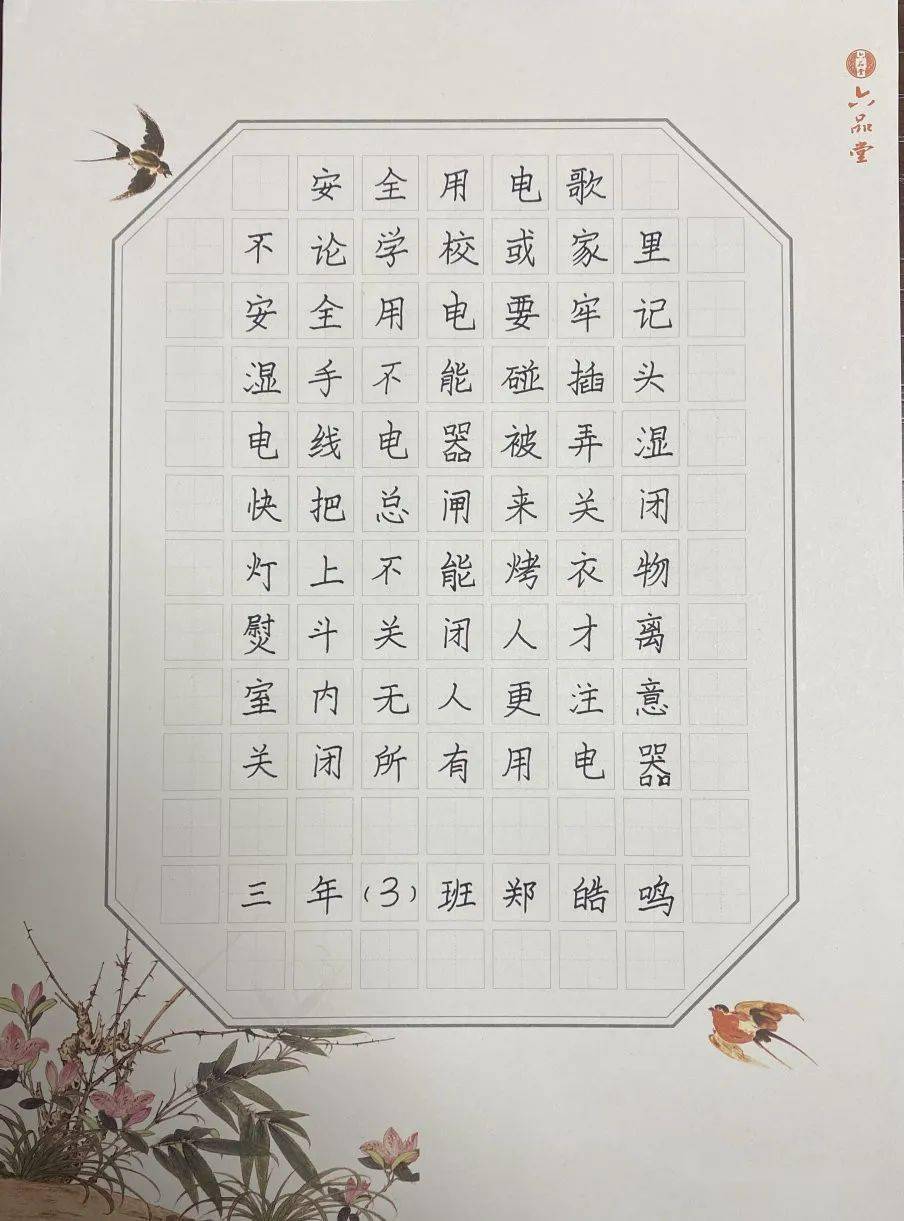 六品堂
六品堂
安全用电歌
不论学校或家里
安全用电要牢记
湿手不能碰插头
电线电器被弄湿
快把总闸来关闭
灯上不能烤衣物
熨斗关闭人才离
室内无人更注意
关闭所有用电器
三年(3)班郑皓鸣